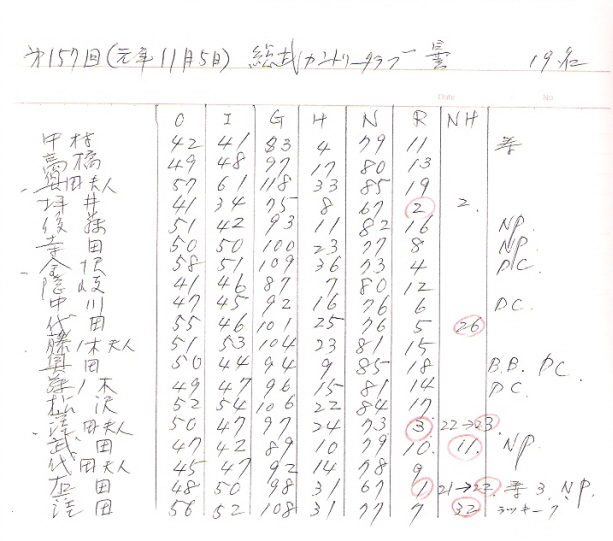 第157回(元年11月5日) 総武カントリークラブ 曇 19名
Date No
O I G H N R NH
中村 42 41 83 4 79 11
高橋 49 48 97 17 80 13
奥田夫人 57 61 118 33 85 19
坪井 41 34 75 8 67 2 2.
後藤 51 42 93 11 82 16 NP.
寺田 50 50 100 23 77 8 NP.
金沢 58 51 109 36 73 4 DC.
隠岐 41 46 87 7 80 12
中川 47 45 92 16 76 6 DC.
代田 55 46 101 25 76 5 26
藤ノ木夫人 51 53 104 23 81 15
奥田 50 44 94 9 85 18 B.B. DC.
藤ノ木 49 47 96 15 81 14 DC.
松沢 52 54 106 22 84 17
窪田夫人 50 47 97 24 73 3. 22→23.
武田 47 42 89 10 79 10. 11. NP.
代田夫人 45 47 92 14 78 9
田 48 50 98 31 67 1 21→22. 3. NP.
窪田 56 52 108 31 77 7 32 ラッキー7